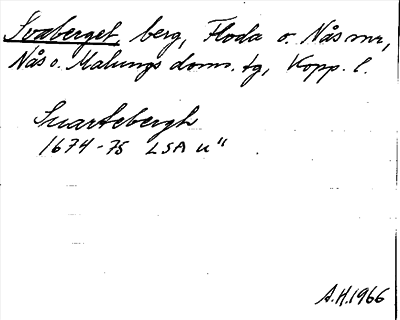 Svaberget, berg, Floda o. Nås snr,
Nås o. Malungs doms. tg, Kopp. l.
Suartebergh
1674-75 LSA u"
A.H. 1966